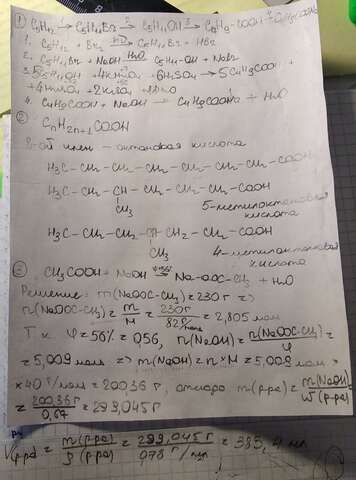 ① C5H12 →1 C5H11Br →2 C5H11OH →3 C4H9-COOH →4 C4H9COONa
1. C5H12 + Br2 →hν C5H11Br + HBr
2. C5H11Br + NaOH →H2O C5H11-OH + NaBr
3. 5C5H11OH + 4KMnO4 + 6H2SO4 → 5C4H9COOH +
+4MnSO4 + 2K2SO4 + 11H2O
4. C4H9COOH + NaOH → C4H9COONa + H2O
② CnH2n+1COOH
8-ой член – октановая кислота
H3C-CH2-CH2-CH2-CH2-CH2-CH2-COOH
H3C-CH2-CH-CH2-CH2-CH2-COOH
CH3
5-метилоктановая
кислота
H3C-CH2-CH2-CH-CH2-CH2-COOH
CH3
4-метилоктановая
кислота
③ CH3COOH + NaOH → Na-OOC-CH3 + H2O
Решение: m(NaOOC-CH3) = 230 г ⇒
n(NaOOC-CH3) = m/M = 230г/82г/моль = 2,805 моль
Т.к. φ = 56% = 0,56, n(NaOH) = n(NaOOC-CH3)/φ =
= 5,009 моль ⇒ m(NaOH) = n*M = 5,009 моль
× 40 г/моль = 200,36 г, отсюда m(р-ра) = m(NaOH)/ω(р-ра) =
= 200,36г/0,67 = 299,045 г
V(р-ра) = m(р-ра)/ρ(р-ра) = 299,045 г/0,78 г/мл = 383,4 мл